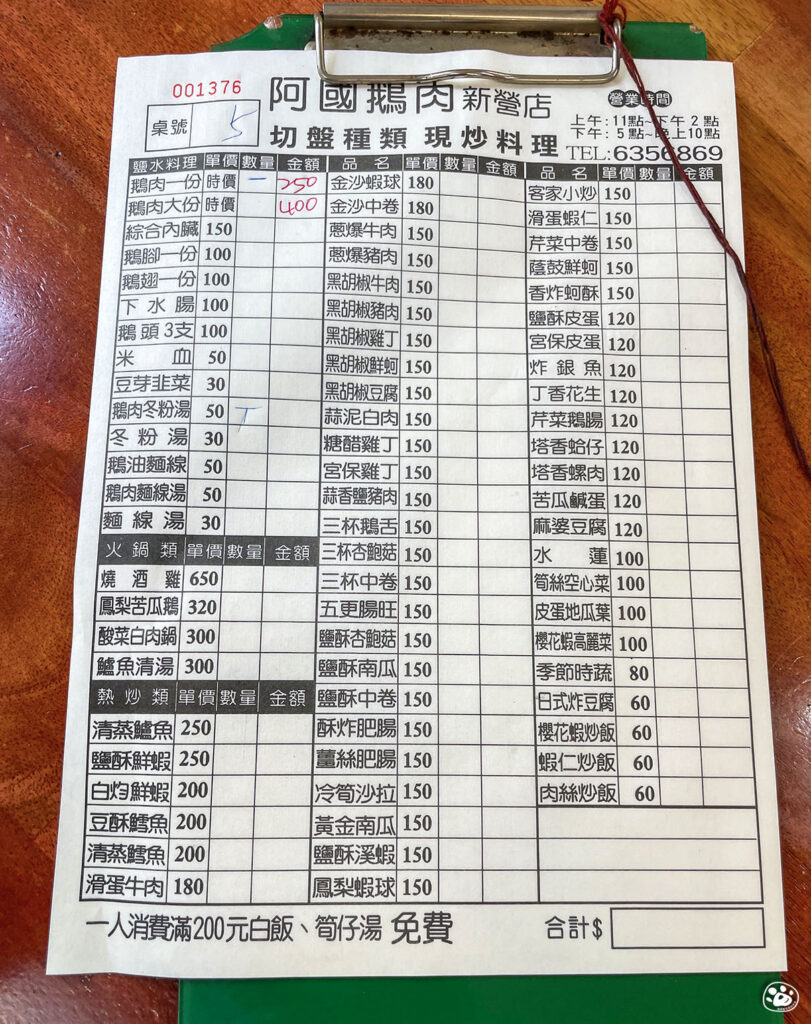 001376
阿國鵝肉 新營店
營業時間
上午：11點~下午 2 點
下午：5點~晚上10點
桌號 5
切盤種類 現炒料理
TEL:6356869
鹽水料理 單價 數量 金額
鵝肉一份 時價 一 250
鵝肉大份 時價 400
綜合內臟 150
鵝腳一份 100
鵝翅一份 100
下水腸 100
鵝頭3支 100
米血 50
豆芽韭菜 30
鵝肉冬粉湯 50 T
冬粉湯 30
鵝油麵線 50
鵝肉麵線湯 50
麵線湯 30
火鍋類 單價 數量 金額
燒酒雞 650
鳳梨苦瓜鵝 320
酸菜白肉鍋 300
鱸魚清湯 300
熱炒類 單價 數量 金額
清蒸鱸魚 250
鹽酥鮮蝦 250
白灼鮮蝦 200
豆酥鱈魚 200
清蒸鱈魚 200
滑蛋牛肉 180
品名 單價 數量 金額
金沙蝦球 180
金沙中卷 180
蔥爆牛肉 150
蔥爆豬肉 150
黑胡椒牛肉 150
黑胡椒豬肉 150
黑胡椒雞丁 150
黑胡椒鮮蚵 150
黑胡椒豆腐 150
蒜泥白肉 150
糖醋雞丁 150
宮保雞丁 150
蒜香鹽豬肉 150
三杯鵝舌 150
三杯杏鮑菇 150
三杯中卷 150
五更腸旺 150
鹽酥杏鮑菇 150
鹽酥南瓜 150
鹽酥中卷 150
酥炸肥腸 150
薑絲肥腸 150
冷筍沙拉 150
黃金南瓜 150
鹽酥溪蝦 150
鳳梨蝦球 150
品名 單價 數量 金額
客家小炒 150
滑蛋蝦仁 150
芹菜中卷 150
蔭鼓鮮蚵 150
香炸蚵酥 150
鹽酥皮蛋 120
宮保皮蛋 120
炸銀魚 120
丁香花生 120
芹菜鵝腸 120
塔香蛤仔 120
塔香螺肉 120
苦瓜鹹蛋 120
麻婆豆腐 120
水蓮 100
筍絲空心菜 100
皮蛋地瓜葉 100
櫻花蝦高麗菜 100
季節時蔬 80
日式炸豆腐 60
櫻花蝦炒飯 60
蝦仁炒飯 60
肉絲炒飯 60
一人消費滿200元白飯、筍仔湯 免費
合計$